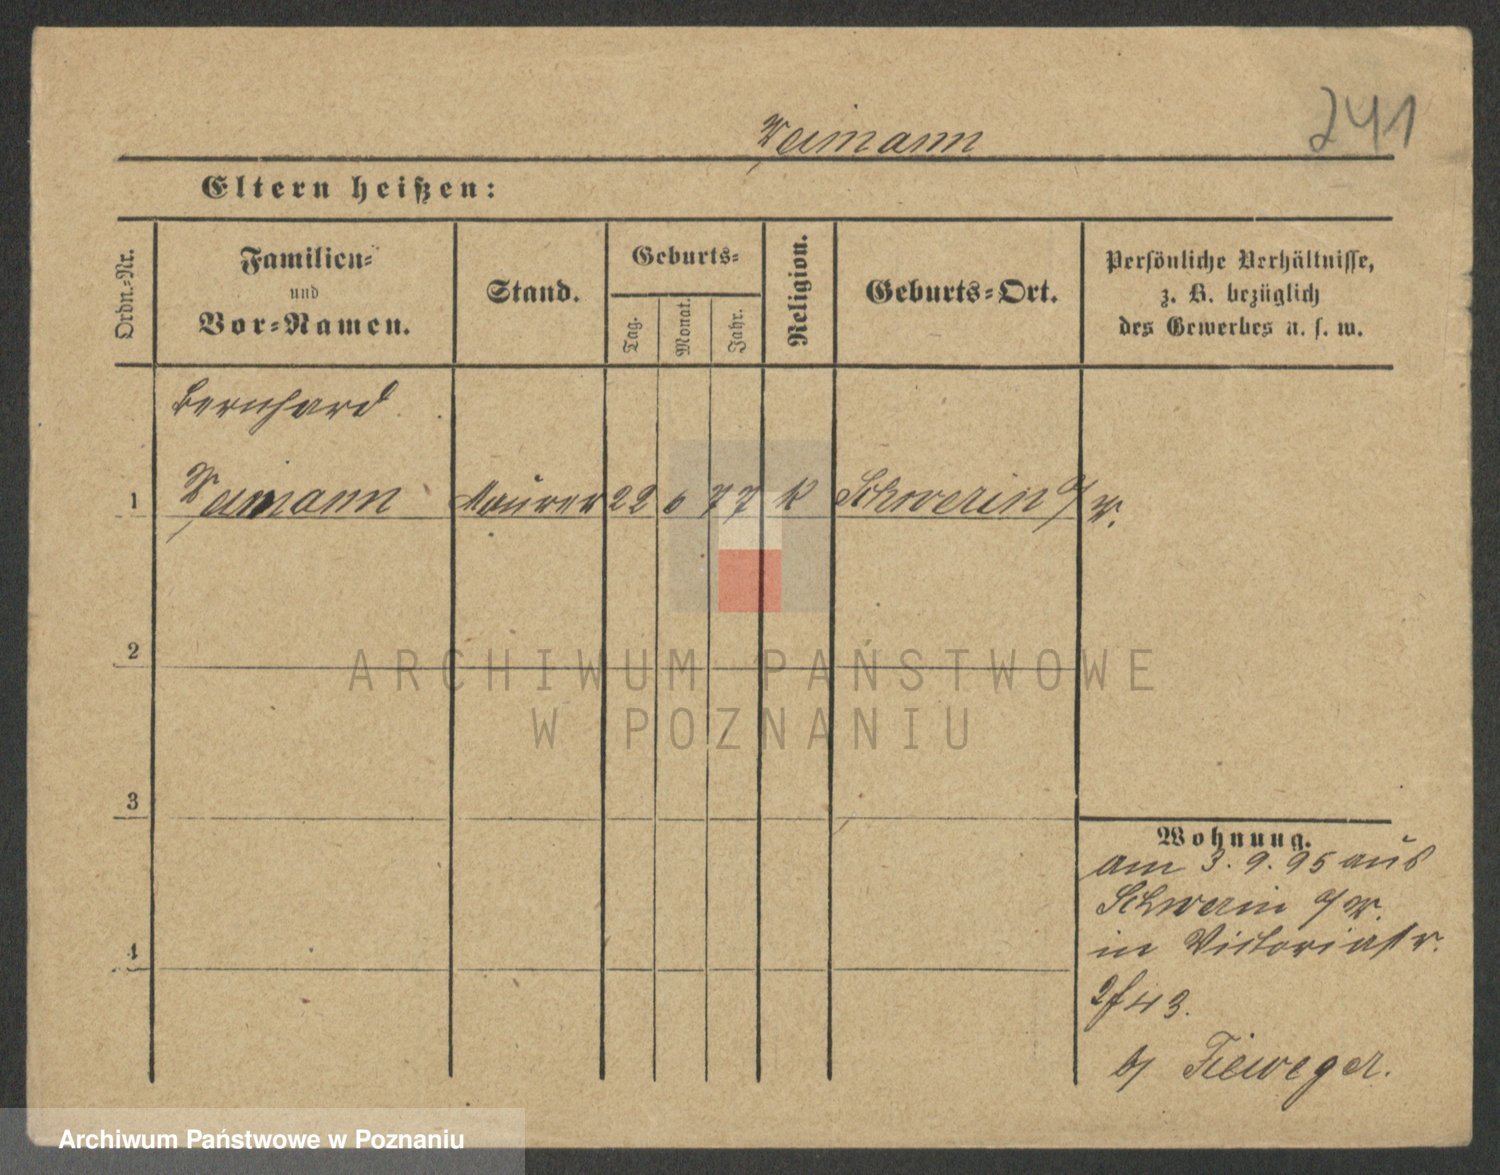 Weimann
241
Eltern heißen:
Ordn.-Nr.
Familien-
und
Vor-Namen.
Stand.
Geburts-
Tag.
Monat.
Jahr.
Religion.
Geburts-Ort.
Persönliche Verhältnisse,
z. B. bezüglich
des Gewerbes u. s. w.
Bernhard
1 Weimann Maurer 22 6 77 k Schwerin a/W.
2
3
4
Wohnung.
am 3. 9. 95 aus
Schwerin a/W.
in Victoriastr.
43.
b/ Fieweger.
ARCHIWUM PAŃSTWOWE
W POZNANIU
Archiwum Państwowe w Poznaniu